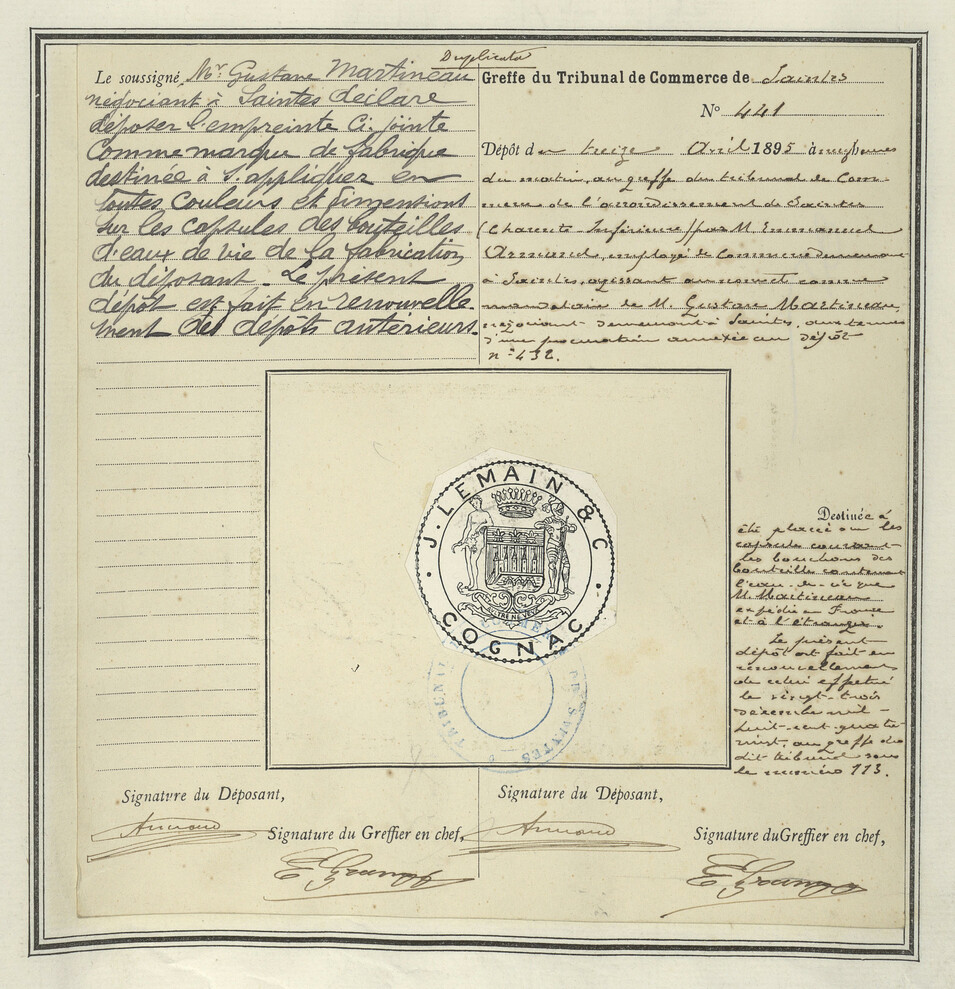 Duplicata
Le soussigné Mr. Gustave Martineau
négociant à Saintes déclare
déposer l'empreinte ci-jointe
comme marque de fabrique
destinée à s'appliquer en
toutes couleurs et dimensions
sur les capsules des bouteilles
d'eaux de vie de la fabrication
du déposant. Le présent
dépôt est fait en renouvelle-
ment des dépôts antérieurs
Greffe du Tribunal de Commerce de Saintes
No 441
Dépôt du treize Avril 1895 à neuf heures
du matin, au greffe du tribunal de Com-
merce de l'arrondissement de Saintes
(Charente Inférieure) par M. Emmanuel
Armand, employé de Commerce demeurant
à Saintes, agissant au nom et comme
mandataire de M. Gustave Martineau,
négociant demeurant à Saintes, aux termes
d'une procuration annexée au dépôt
no 432.
J. LEMAIN & C
COGNAC
TRIBUNAL
DE SAINTES
Destinée à
être placée sur les
capsules couvrant
les bouchons des
bouteilles contenant
l'eau-de-vie que
M. Martineau
expédie en France
et à l'étranger.
Le présent
dépôt est fait en
renouvellement
de celui effectué
le vingt-trois
décembre mil-
huit-cent-quatre
vingt, au greffe du
dit tribunal sous
le numéro 113.
Signatvre du Déposant,
Armand
Signature du Greffier en chef,
Signature du Déposant,
Armand
Signature du Greffier en chef,